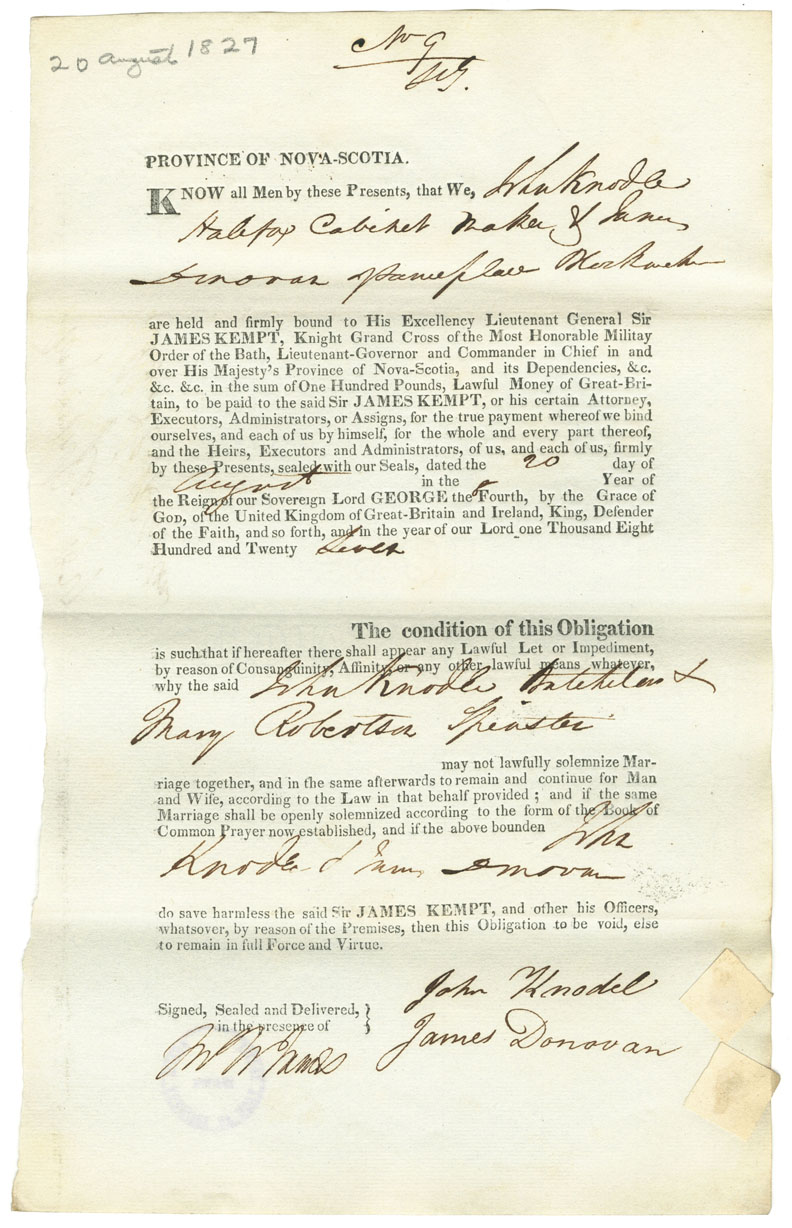 20 August 1827
No 9
PROVINCE OF NOVA-SCOTIA.
KNOW all Men by these Presents, that We, John Knodle
Halifax Cabinet Maker & James
Donovan same place
are held and firmly bound to His Excellency Lieutenant General Sir
JAMES KEMPT, Knight Grand Cross of the Most Honorable Militay
Order of the Bath, Lieutenant-Governor and Commander in Chief in and
over His Majesty's Province of Nova-Scotia, and its Dependencies, &c.
&c. &c. in the sum of One Hundred Pounds, Lawful Money of Great-Bri-
tain, to be paid to the said Sir JAMES KEMPT, or his certain Attorney,
Executors, Administrators, or Assigns, for the true payment whereof we bind
ourselves, and each of us by himself, for the whole and every part thereof,
and the Heirs, Executors and Administrators, of us, and each of us, firmly
by these Presents, sealed with our Seals, dated the 20 day of
August in the 8 Year of
the Reign of our Sovereign Lord GEORGE the Fourth, by the Grace of
GOD, of the United Kingdom of Great-Britain and Ireland, King, Defender
of the Faith, and so forth, and in the year of our Lord one Thousand Eight
Hundred and Twenty Seven
The condition of this Obligation
is such that if hereafter there shall appear any Lawful Let or Impediment,
by reason of Consanguinity, Affinity or any other lawful means whatever,
why the said John Knodle Batchelor &
Mary Robertson Spinster
may not lawfully solemnize Mar-
riage together, and in the same afterwards to remain and continue for Man
and Wife, according to the Law in that behalf provided ; and if the same
Marriage shall be openly solemnized according to the form of the Book of
Common Prayer now established, and if the above bounden John
Knodle & James Donovan
do save harmless the said Sir JAMES KEMPT, and other his Officers,
whatsover, by reason of the Premises, then this Obligation to be void, else
to remain in full Force and Virtue.
John Knodel
Signed, Sealed and Delivered,
in the presence of
James Donovan